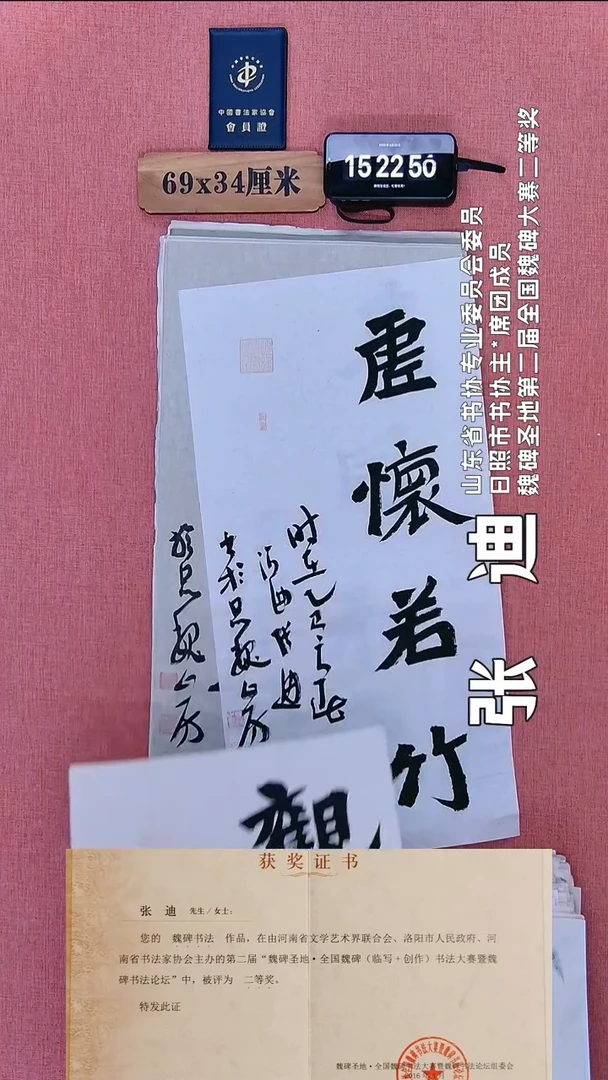 中國書法家協會
會員證
69x34厘米
15 22 50
山东省书协专业委员会委员
日照市书协主*席团成员
魏碑圣地第二届全国魏碑大赛二等奖
张 迪
虚懷若竹
时在乙巳之夏
观
获奖证书
张 迪 先生/女士:
您的 魏碑书法 作品，在由河南省文学艺术界联合会、洛阳市人民政府、河
南省书法家协会主办的第二届“魏碑圣地·全国魏碑（临写+创作）书法大赛暨魏
碑书法论坛”中，被评为 二等奖。
特发此证
魏碑圣地·全国魏碑书法大赛暨魏碑书法论坛组委会